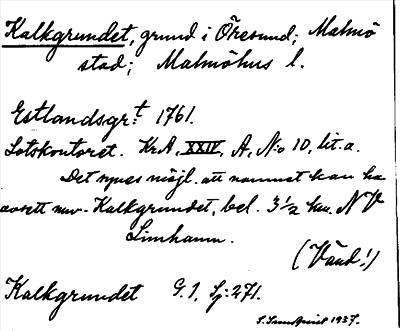 Kalkgrundet, grund i Öresund; Malmö
stad; Malmöhus l.
Estlandsgr:t 1761.
Lotskontoret. KrA, XXIV, A, N:o 10, lit. a.
Det synes möjl. att namnet kan ha
avsett nuv. Kalkgrundet, bel. 3½ km. NV
Limhamn.
(Vänd!)
Kalkgrundet G. 1, Sj: 271.
1937.